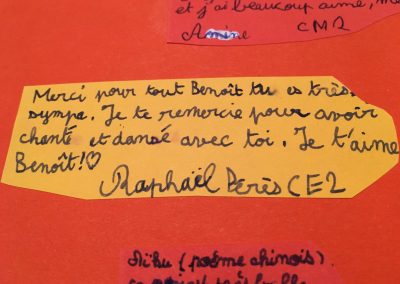 et j'ai beaucoup aimé, me
Amine CM2
Merci pour tout Benoît tu es très
sympa. Je te remercie pour avoir
chanté et dansé avec toi. Je t'aime
Benoît!♡
Raphaël Pérès CE2
(poème chinois).